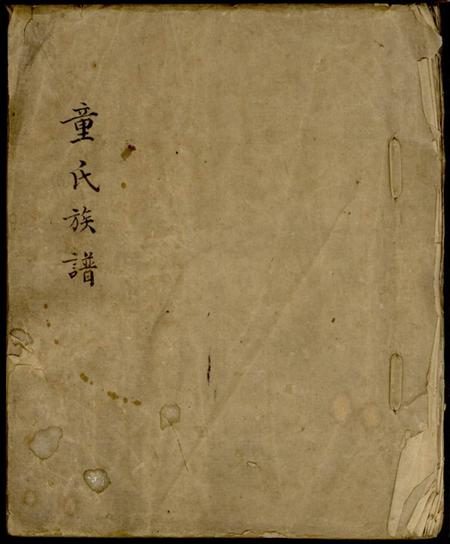 童氏族譜